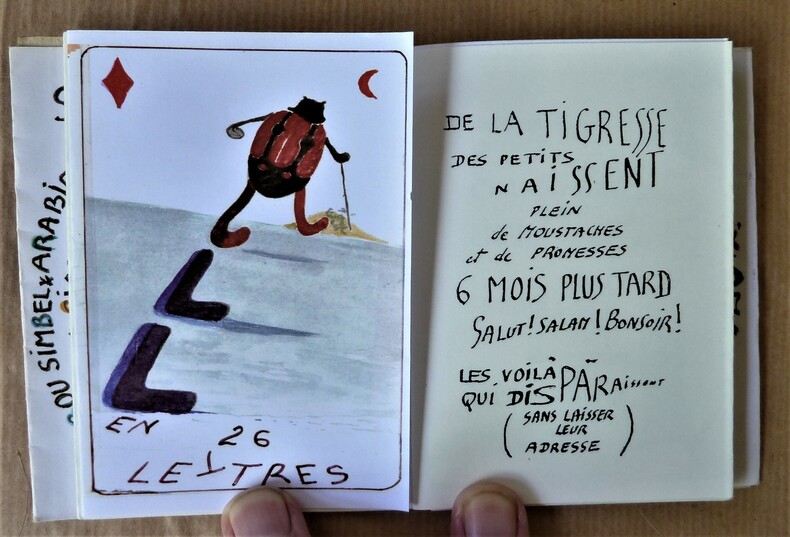 OU SIMBEL*ARABI
EN 26
LETTRES
DE LA TIGRESSE
DES PETITS
NAISSENT
PLEIN
de MOUSTACHES
et de PROMESSES
6 MOIS PLUS TARD
SALUT! SALAM! BONSOIR!
LES VOILÀ
QUI DISPARAissent
( SANS LAISSER
LEUR
ADRESSE )